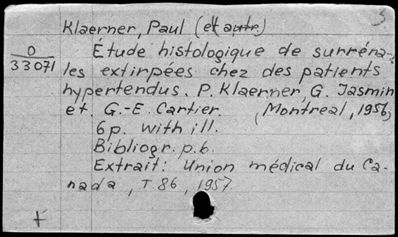 3
Klaerner, Paul (et autr.)
O
33071
Etude histologique de surréna-
les extirpées chez des patients
hypertendus. P. Klaerner, G. Jasmin
et G.-E. Cartier. (Montreal, 1956)
6p. with ill.
Bibliogr. p.6.
Extrait: Union médical du Ca-
nada, T.86, 1957